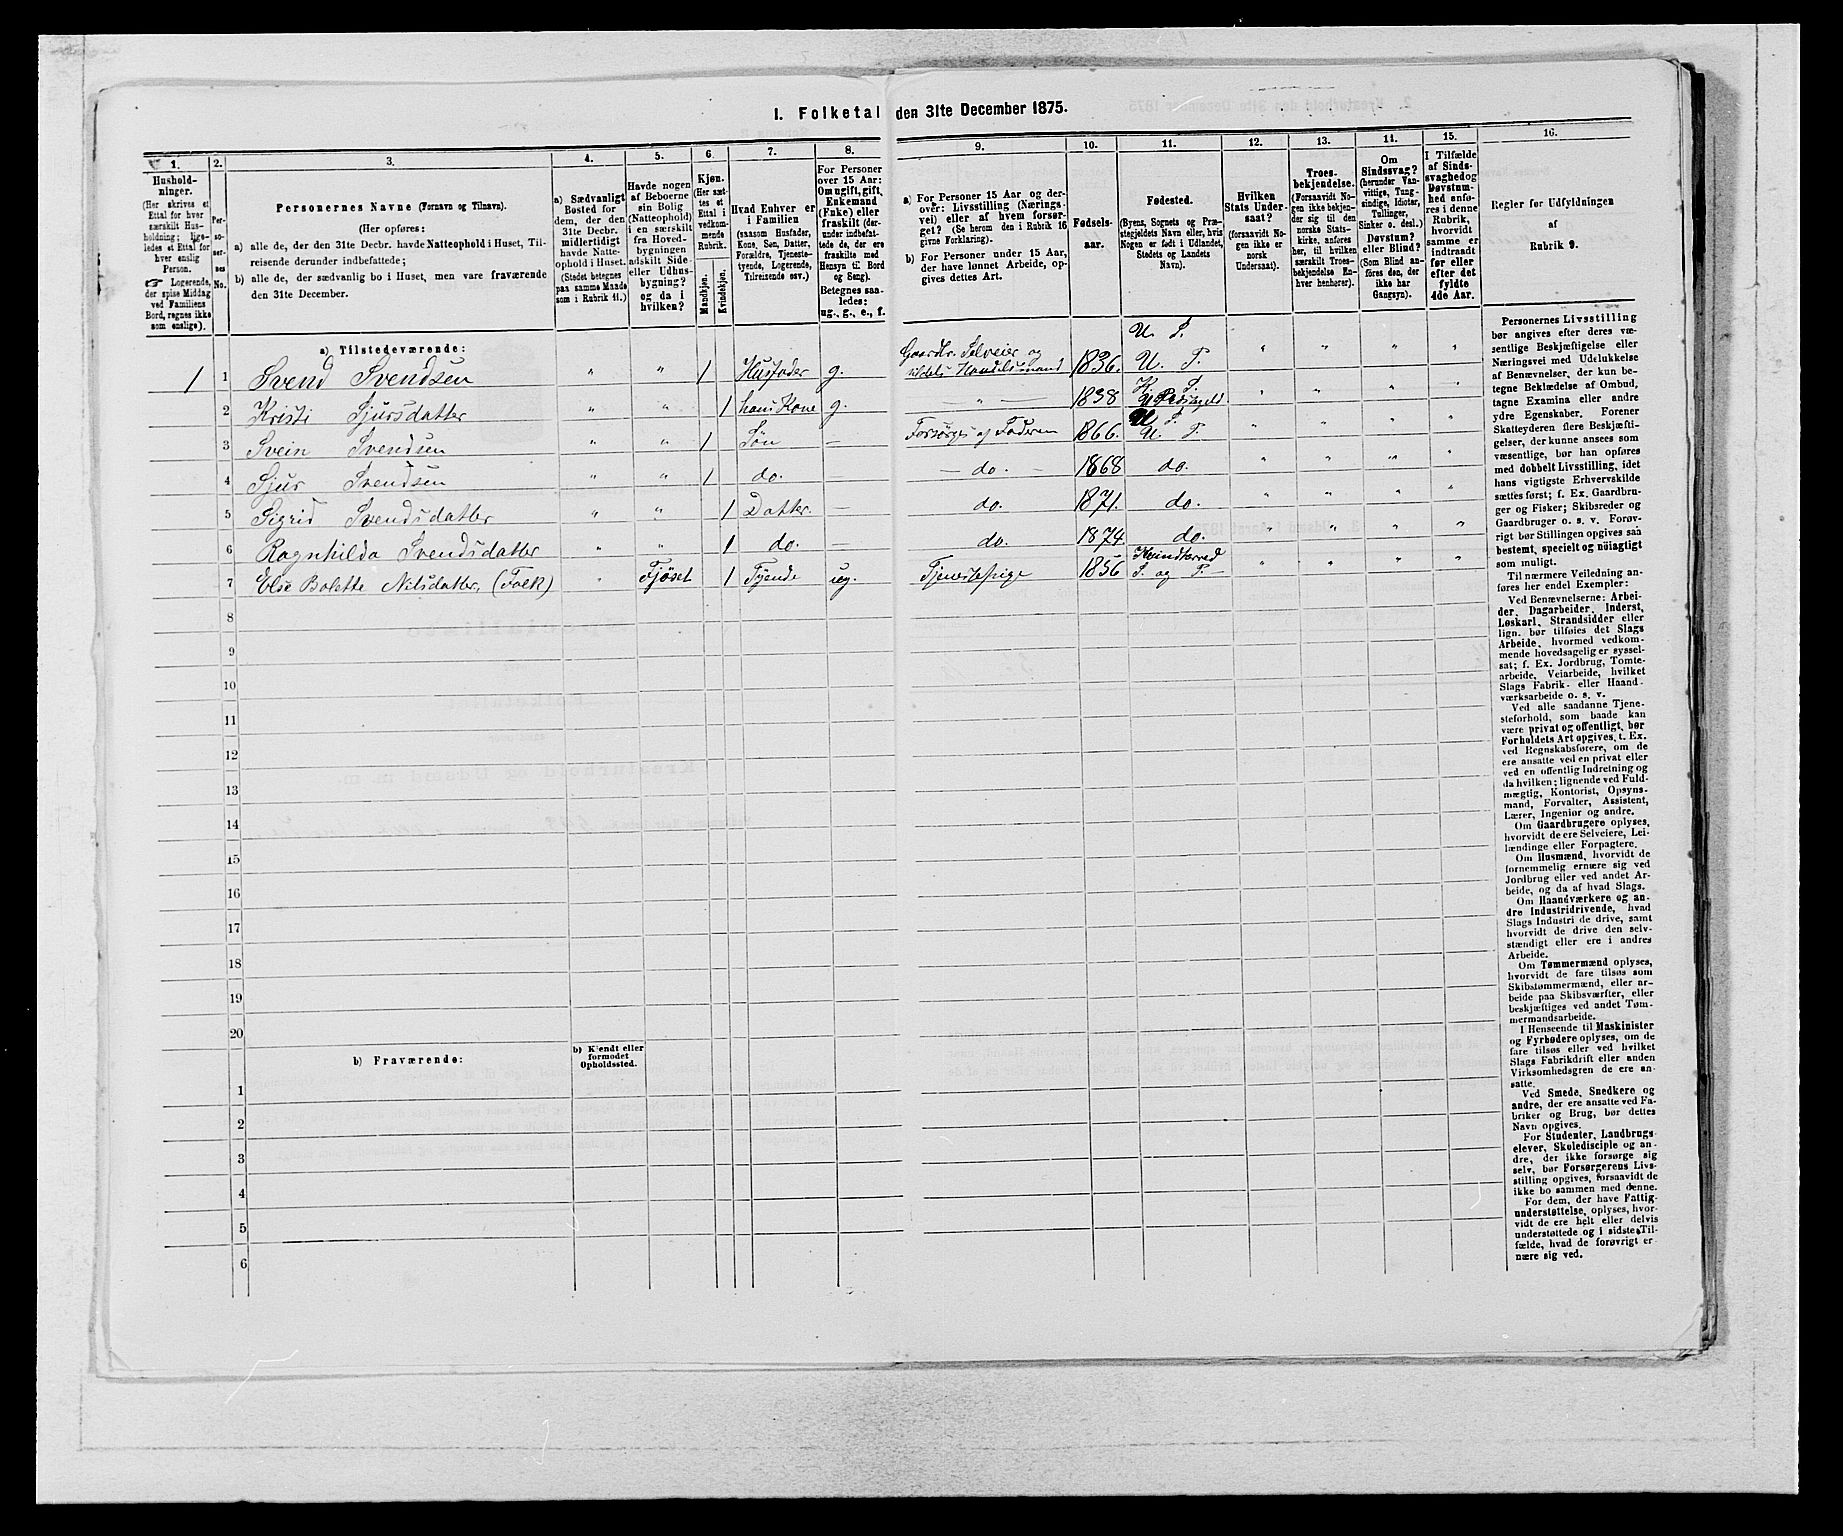 I. Folketal den 31te December 1875.
1. 2. 3. 4. 5. 6. 7. 8. 9. 10. 11. 12. 13. 14. 15. 16.
Hushold-
ninger.
(Her skrives et
Ettal for hver
særskilt Hus-
holdning; lige-
ledes et Ettal for
hver enslig
Person.
☞ Logerende,
der spise Middag
ved Familiens
Bord, regnes ikke
som enslige).
Per-
so-
ner-
nes
No.
Personernes Navne (Fornavn og Tilnavn).
(Her opføres:
a) alle de, der den 31te Decbr. havde Natteophold i Huset, Til-
reisende derunder indbefattede;
b) alle de, der sædvanlig bo i Huset, men vare fraværende
den 31te December.
a) Sædvanligt
Bosted for
dem, der den
31te Decbr.
midlertidigt
havde Natte-
ophold i Huset.
(Stedet betegnes
paa samme Maade
som i Rubrik 11.)
Havde nogen
af Beboerne
sin Bolig
(Natteophold)
i en særskilt
fra Hoved-
bygningen
adskilt Side-
eller Udhus-
bygning?
og da i
hvilken?
Kjøn.
(Her sæt-
tes et
Ettal i
vedkom-
mende
Rubrik.
Mandkjøn.
Kvindekjøn.
Hvad Enhver er
i Familien
(saasom Husfader,
Kone, Søn, Datter,
Forældre, Tjeneste-
tyende, Logerende,
Tilreisende osv.)
For Personer
over 15 Aar:
Om ugift, gift,
Enkemand
(Enke) eller
fraskilt (der-
under indbefat-
tede de, der ere
fraskilte med
Hensyn til Bord
og Seng).
Betegnes saa-
ledes:
ug., g., e., f.
a) For Personer 15 Aar og der-
over: Livsstilling (Nærings-
vei) eller af hvem forsør-
get? (Se herom den i Rubrik 16
givne Forklaring).
b) For Personer under 15 Aar,
der have lønnet Arbeide, op-
gives dettes Art.
Fødsels-
aar.
Fødested.
(Byens, Sognets og Præ-
stegjeldets Navn eller, hvis
Nogen er født i Udlandet,
Stedets og Landets
Navn).
Hvilken
Stats Under-
saat?
(forsaavidt No-
gen ikke er
norsk
Undersaat).
Troes-
bekjendelse.
(Forsaavidt No-
gen ikke bekjen-
der sig til den
norske Stats-
kirke, anføres
her, til hvilken
særskilt Troes-
bekjendelse En-
hver henhører).
Om
Sindssvag?
(herunder Van-
vittige, Tung-
sindige, Idioter,
Tullinger,
Sinker o. desl.)
Døvstum?
eller Blind?
(Som Blind an-
føres den, der
ikke har
Gangsyn).
I Tilfælde
af Sinds-
svaghed og
Døvstum-
hed anfø-
res i denne
Rubrik,
hvorvidt
samme er
indtraadt
før eller
efter det
fyldte
4de Aar.
Regler for Udfyldningen
af
Rubrik 9.
a) Tilstedeværende:
1 1 Svend Svendsen " " 1 Husfader g. Gaardbr. Selveier og tildels Handelsmand 1836. U. S. U. P. " " " "
2 Kristi Sjursdatter " " 1 hans Kone g. — " — 1838 S. " " " "
3 Svein Svendsen " " 1 Søn — Forsørges af Faderen 1866. U. S. U. P. " " " "
4 Sjur Svendsen " " 1 do. — do. — 1868 do. " " " "
5 Sigrid Svendsdatter " " 1 Datter. — do. 1871. do. " " " "
6 Ragnhilda Svendsdatter " " 1 do. — do. 1874 do. " " " "
7 Else Bolette Nilsdatter, (Falk) " Fjøset 1 Tyende ug. Tjenestepige 1856 Kvindherred S. og P. — " " " "
8
9
10
11
12
13
14
15
16
17
18
19
20
b) Fraværende:
b) Kjendt eller
formodet
Opholdssted.
1
2
3
4
5
6
Personernes Livsstilling
bør angives efter deres væ-
sentlige Beskjæftigelse eller
Næringsvei med Udelukkelse
af Benævnelser, der kun be-
tegne Beklædelse af Ombud,
tagne Examina eller andre
ydre Egenskaber. Forener
Skatteyderen flere Beskjæfti-
gelser, der kunne ansees som
væsentlige, bør han opføres
med dobbelt Livsstilling, idet
hans vigtigste Erhvervskilde
sættes først; f. Ex. Gaardbru-
ger og Fisker; Skibsreder og
Gaardbruger o. s. v. Forøv-
rigt bør Stillingen opgives saa
bestemt, specielt og nøiagtigt
som muligt.
Til nærmere Veiledning an-
føres her endel Exempler:
Ved Benævnelserne: Arbei-
der, Dagarbeider, Inderst,
Løskarl, Strandsidder eller
lign. bør tilføies det Slags
Arbeide, hvormed vedkom-
mende hovedsagelig er syssel-
sat; f. Ex. Jordbrug, Tomte-
arbeide, Veiarbeide, hvilket
Slags Fabrik- eller Haand-
værksarbeide o. s. v.
Ved alle saadanne Tjene-
steforhold, som baade kan
være privat og offentligt, bør
Forholdets Art opgives, t. Ex.
ved Regnskabsførere, om de
ere ansatte ved en privat eller
ved en offentlig Indretning og
da hvilken; lignende ved Fuld-
mægtig, Kontorist, Opsyns-
mand, Forvalter, Assistent,
Lærer, Ingeniør og andre.
Om Gaardbrugere oplyses,
hvorvidt de ere Selveiere, Lei-
lændinge eller Forpagtere.
Om Husmænd, hvorvidt de
fornemmelig ernære sig ved
Jordbrug eller ved andet Ar-
beide, og da af hvad Slags.
Om Haandværkere og an-
dre Industridrivende, hvad
Slags Industri de drive, samt
hvorvidt de drive den selv-
stændigt eller ere i andres
Arbeide.
Om Tømmermænd oplyses,
hvorvidt de fare tilsøs som
Skibstømmermænd, eller ar-
beide paa Skibsværfter, eller
beskjæftiges ved andet Tøm-
mermandsarbeide.
I Henseende til Maskinister
og Fyrbødere oplyses, om de
fare tilsøs eller ved hvilket
Slags Fabrikdrift eller anden
Virksomhedsgren de ere an-
satte.
Ved Smede, Snedkere og
andre, der ere ansatte ved Fa-
briker og Brug, bør dettes
Navn opgives.
For Studenter, Landbrugs-
elever, Skoledisciple og an-
dre, der ikke forsørge sig
selv, bør Forsørgerens Livs-
stilling opgives, forsaavidt de
ikke bo sammen med denne.
For dem, der have Fattig-
understøttelse, oplyses, hvor-
vidt de ere helt eller delvis
understøttede og i sidste Til-
fælde, hvad de forøvrigt er-
nære sig ved.